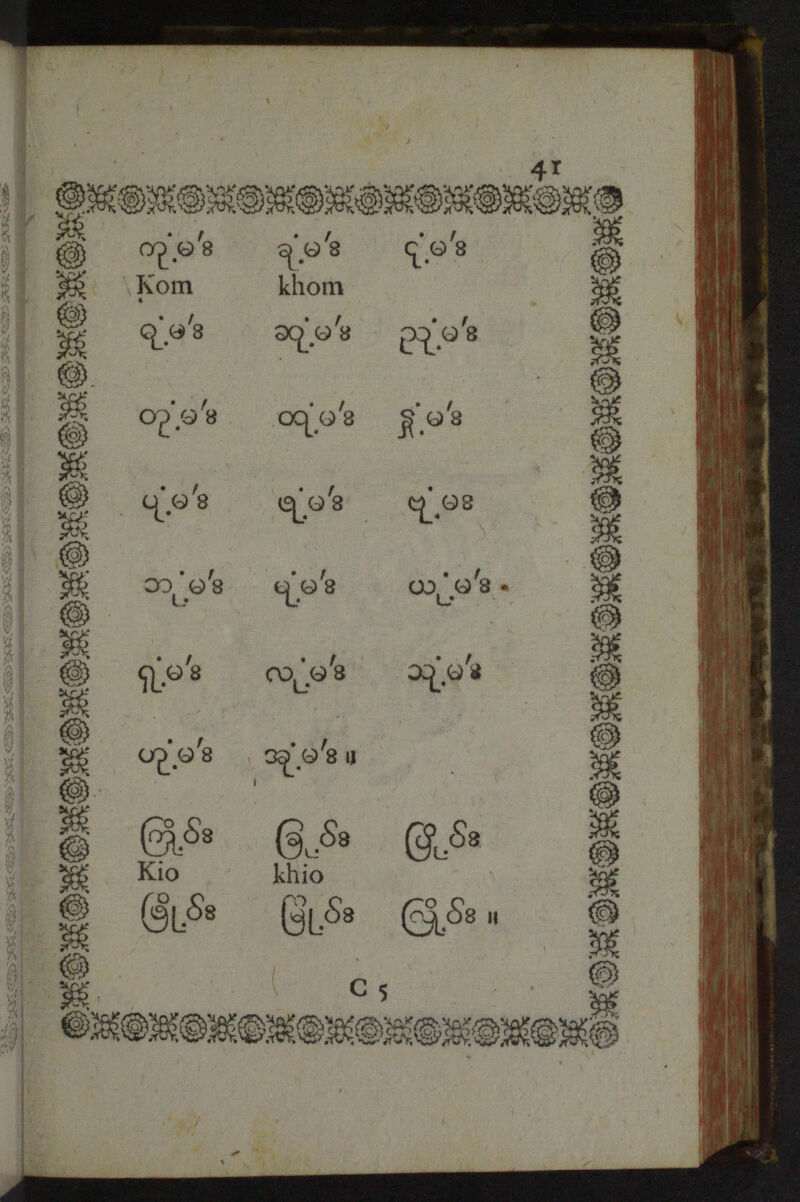 41
ကုံ့မ်း ခုံ့မ်း ငုံ့မ်း
Kom khom
စုံ့မ်း ဆုံ့မ်း ညုံ့မ်း
တုံ့မ်း ထုံ့မ်း နှုံ့မ်း
ပုံ့မ်း ဖုံ့မ်း ဗုံ့မး
ဘုံ့မ်း မုံ့မ်း ယုံ့မ်း
ရုံ့မ်း လုံ့မ်း သုံ့မ်း
ဟုံ့မ်း အုံ့မ်း ။
ကြိုဝ်း ခြိုဝ်း ပြိုဝ်း
Kio khio
ဖြိုဝ်း မြိုဝ်း ။
C 5